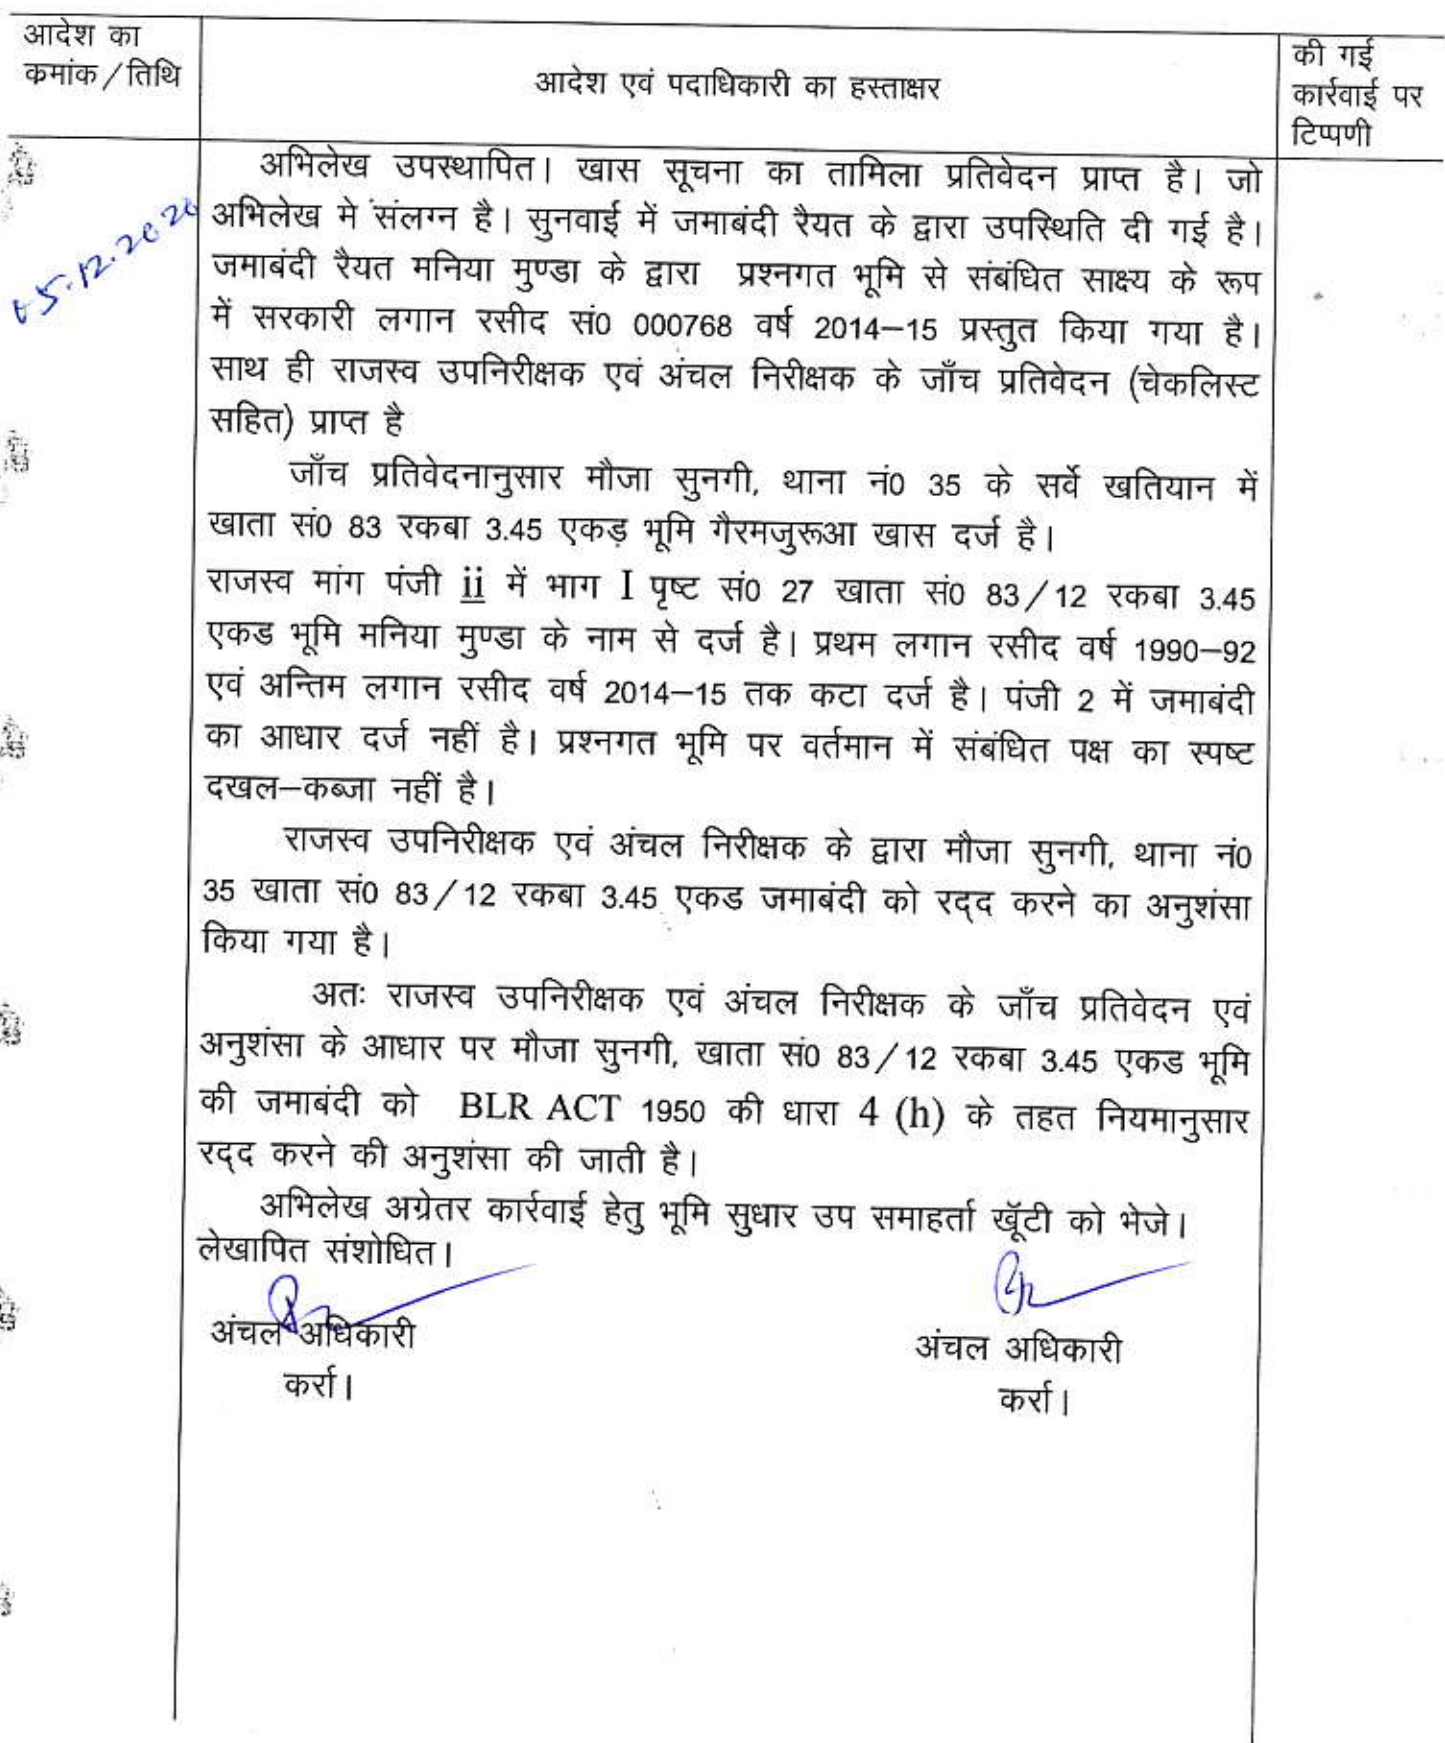 आदेश का
कमांक/तिथि
आदेश एवं पदाधिकारी का हस्ताक्षर
की गई
कार्रवाई पर
टिप्पणी
05.12.2020
अभिलेख उपस्थापित। खास सूचना का तामिला प्रतिवेदन प्राप्त है। जो
अभिलेख मे संलग्न है। सुनवाई में जमाबंदी रैयत के द्वारा उपस्थिति दी गई है।
जमाबंदी रैयत मनिया मुण्डा के द्वारा प्रश्नगत भूमि से संबंधित साक्ष्य के रूप
में सरकारी लगान रसीद सं0 000768 वर्ष 2014–15 प्रस्तुत किया गया है।
साथ ही राजस्व उपनिरीक्षक एवं अंचल निरीक्षक के जाँच प्रतिवेदन (चेकलिस्ट
सहित) प्राप्त है
जाँच प्रतिवेदनानुसार मौजा सुनगी, थाना नं0 35 के सर्वे खतियान में
खाता सं0 83 रकबा 3.45 एकड़ भूमि गैरमजुरूआ खास दर्ज है।
राजस्व मांग पंजी ii में भाग I पृष्ट सं0 27 खाता सं0 83/12 रकबा 3.45
एकड भूमि मनिया मुण्डा के नाम से दर्ज है। प्रथम लगान रसीद वर्ष 1990–92
एवं अन्तिम लगान रसीद वर्ष 2014–15 तक कटा दर्ज है। पंजी 2 में जमाबंदी
का आधार दर्ज नहीं है। प्रश्नगत भूमि पर वर्तमान में संबंधित पक्ष का स्पष्ट
दखल–कब्जा नहीं है।
राजस्व उपनिरीक्षक एवं अंचल निरीक्षक के द्वारा मौजा सुनगी, थाना नं0
35 खाता सं0 83/12 रकबा 3.45 एकड जमाबंदी को रद्द करने का अनुशंसा
किया गया है।
अतः राजस्व उपनिरीक्षक एवं अंचल निरीक्षक के जाँच प्रतिवेदन एवं
अनुशंसा के आधार पर मौजा सुनगी, खाता सं0 83/12 रकबा 3.45 एकड भूमि
की जमाबंदी को BLR ACT 1950 की धारा 4 (h) के तहत नियमानुसार
रद्द करने की अनुशंसा की जाती है।
अभिलेख अग्रेतर कार्रवाई हेतु भूमि सुधार उप समाहर्ता खूँटी को भेजे।
लेखापित संशोधित।
अंचल अधिकारी
कर्रा।
अंचल अधिकारी
कर्रा।